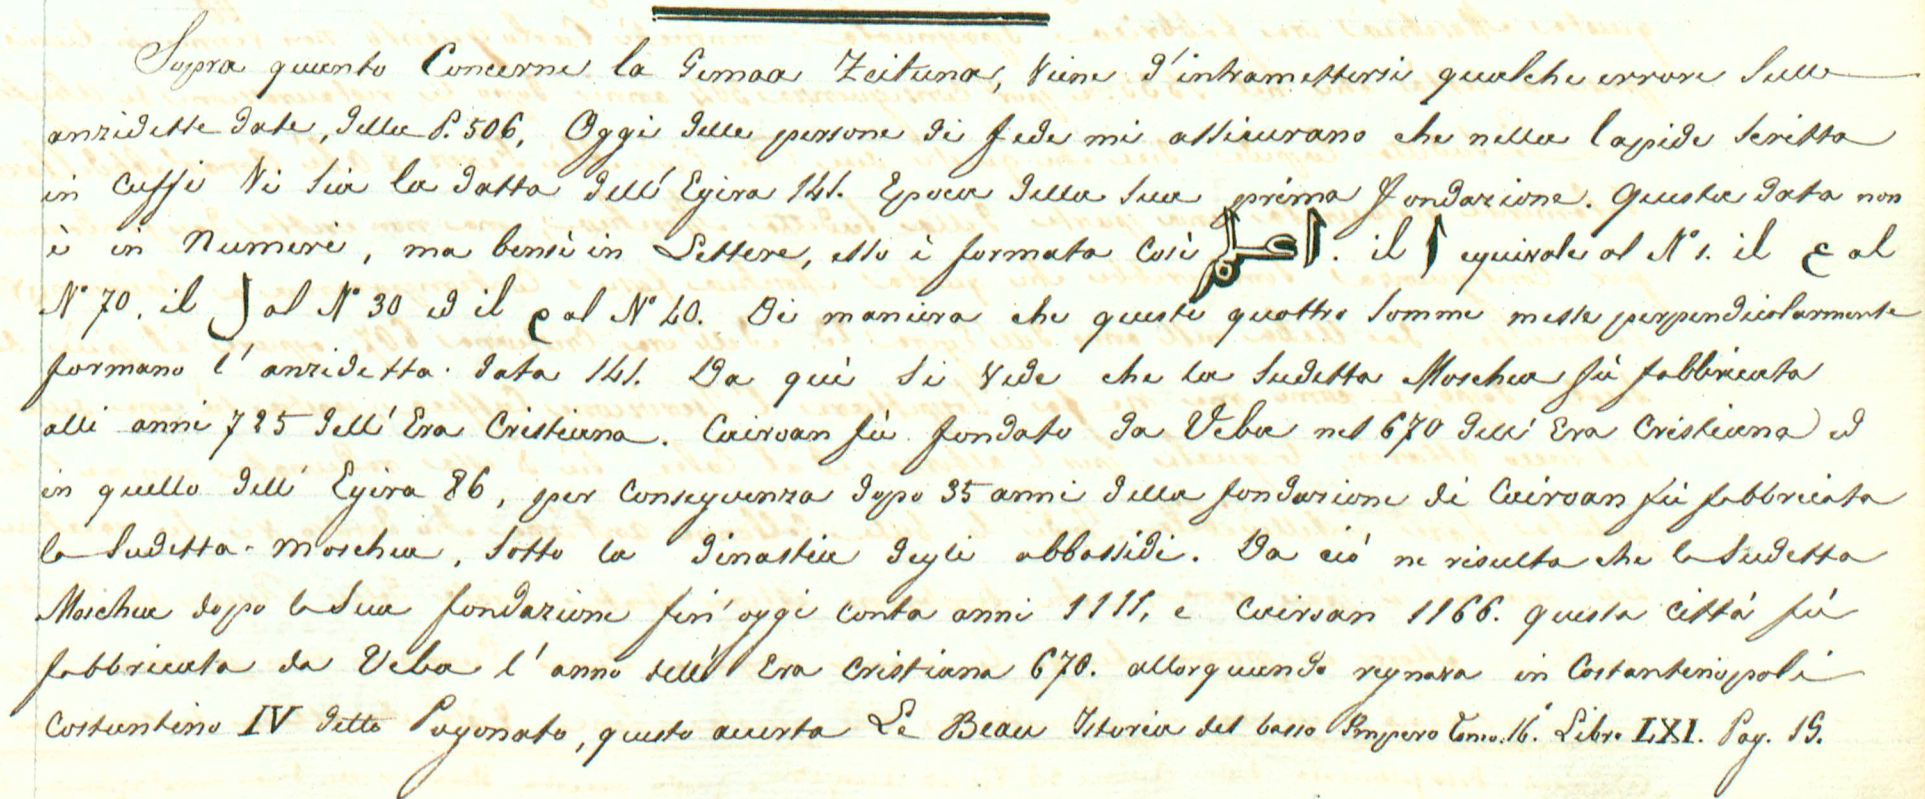 Sopra quanto Concerne la Gemaa Zeituna, Viene d'intramettersi qualche errore Sulle
anzidette date, della P. 506, Oggi delle persone di fede mi assicurano che nella lapide Scritta
in Cuffi Vi Sia la datta dell' Egira 141. Epoca della Sua prima fondazione. Questa data non
è in Numeri, ma bensì in Lettere, esso è formata Così. il ا equivale al N° 1. il ع al
N° 70. il ل al N° 30 ed il م al N° 40. Di maniera che queste quattro Somme messe perpendicolarmente
formano l'anzidetta data 141. Da quì Si Vede che la Sudetta Moschea fù fabbricata
alli anni 725 dell' Era Cristiana. Cairoan fù fondato da Ucba nel 670 dell' Era Cristiana ed
in quello dell' Egira 86, per Conseguenza dopo 35 anni della fondazione di Cairoan fù fabbricata
la Sudetta Moschea, Sotto la dinastia degli abbassidi. Da ciò ne risulta che la Sudetta
Moschea dopo la Sua fondazione fin' oggi conta anni 1111, e Cairoan 1166. questa città fù
fabbricata da Ucba l'anno dell' Era Cristiana 670. allorquando regnava in Costantinopoli
Costantino IV detto Pogonato, questo averta Le Beau Istoria del basso Impero Tomo. 16.° Libro LXI. Pag. 19.